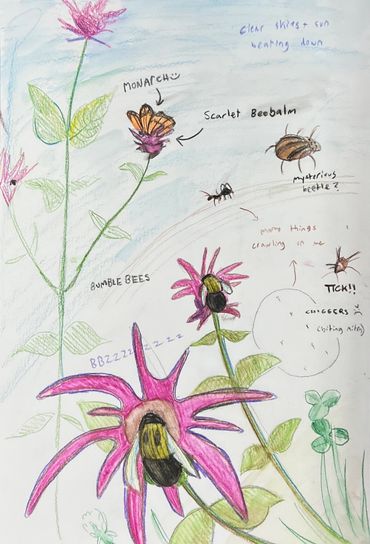 clear skies + sun
beating down
MONARCH :)
Scarlet Beebalm
mysterious
beetle?
many things
crawling on me
BUMBLE BEES
TICK!!
CHIGGERS :(
(biting mites)
BBZzzzzzzz